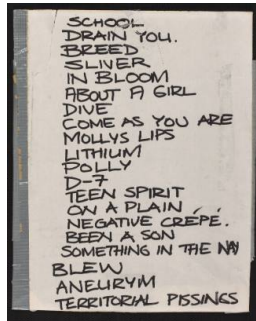 SCHOOL
DRAIN YOU.
BREED
SLIVER
IN BLOOM
ABOUT A GIRL
DIVE
COME AS YOU ARE
MOLLYS LIPS
LITHIUM
POLLY
D-7
TEEN SPIRIT
ON A PLAIN
NEGATIVE CREPE.
BEEN A SON
SOMETHING IN THE NAY
BLEW
ANEURYIM
TERRITORIAL PISSINGS